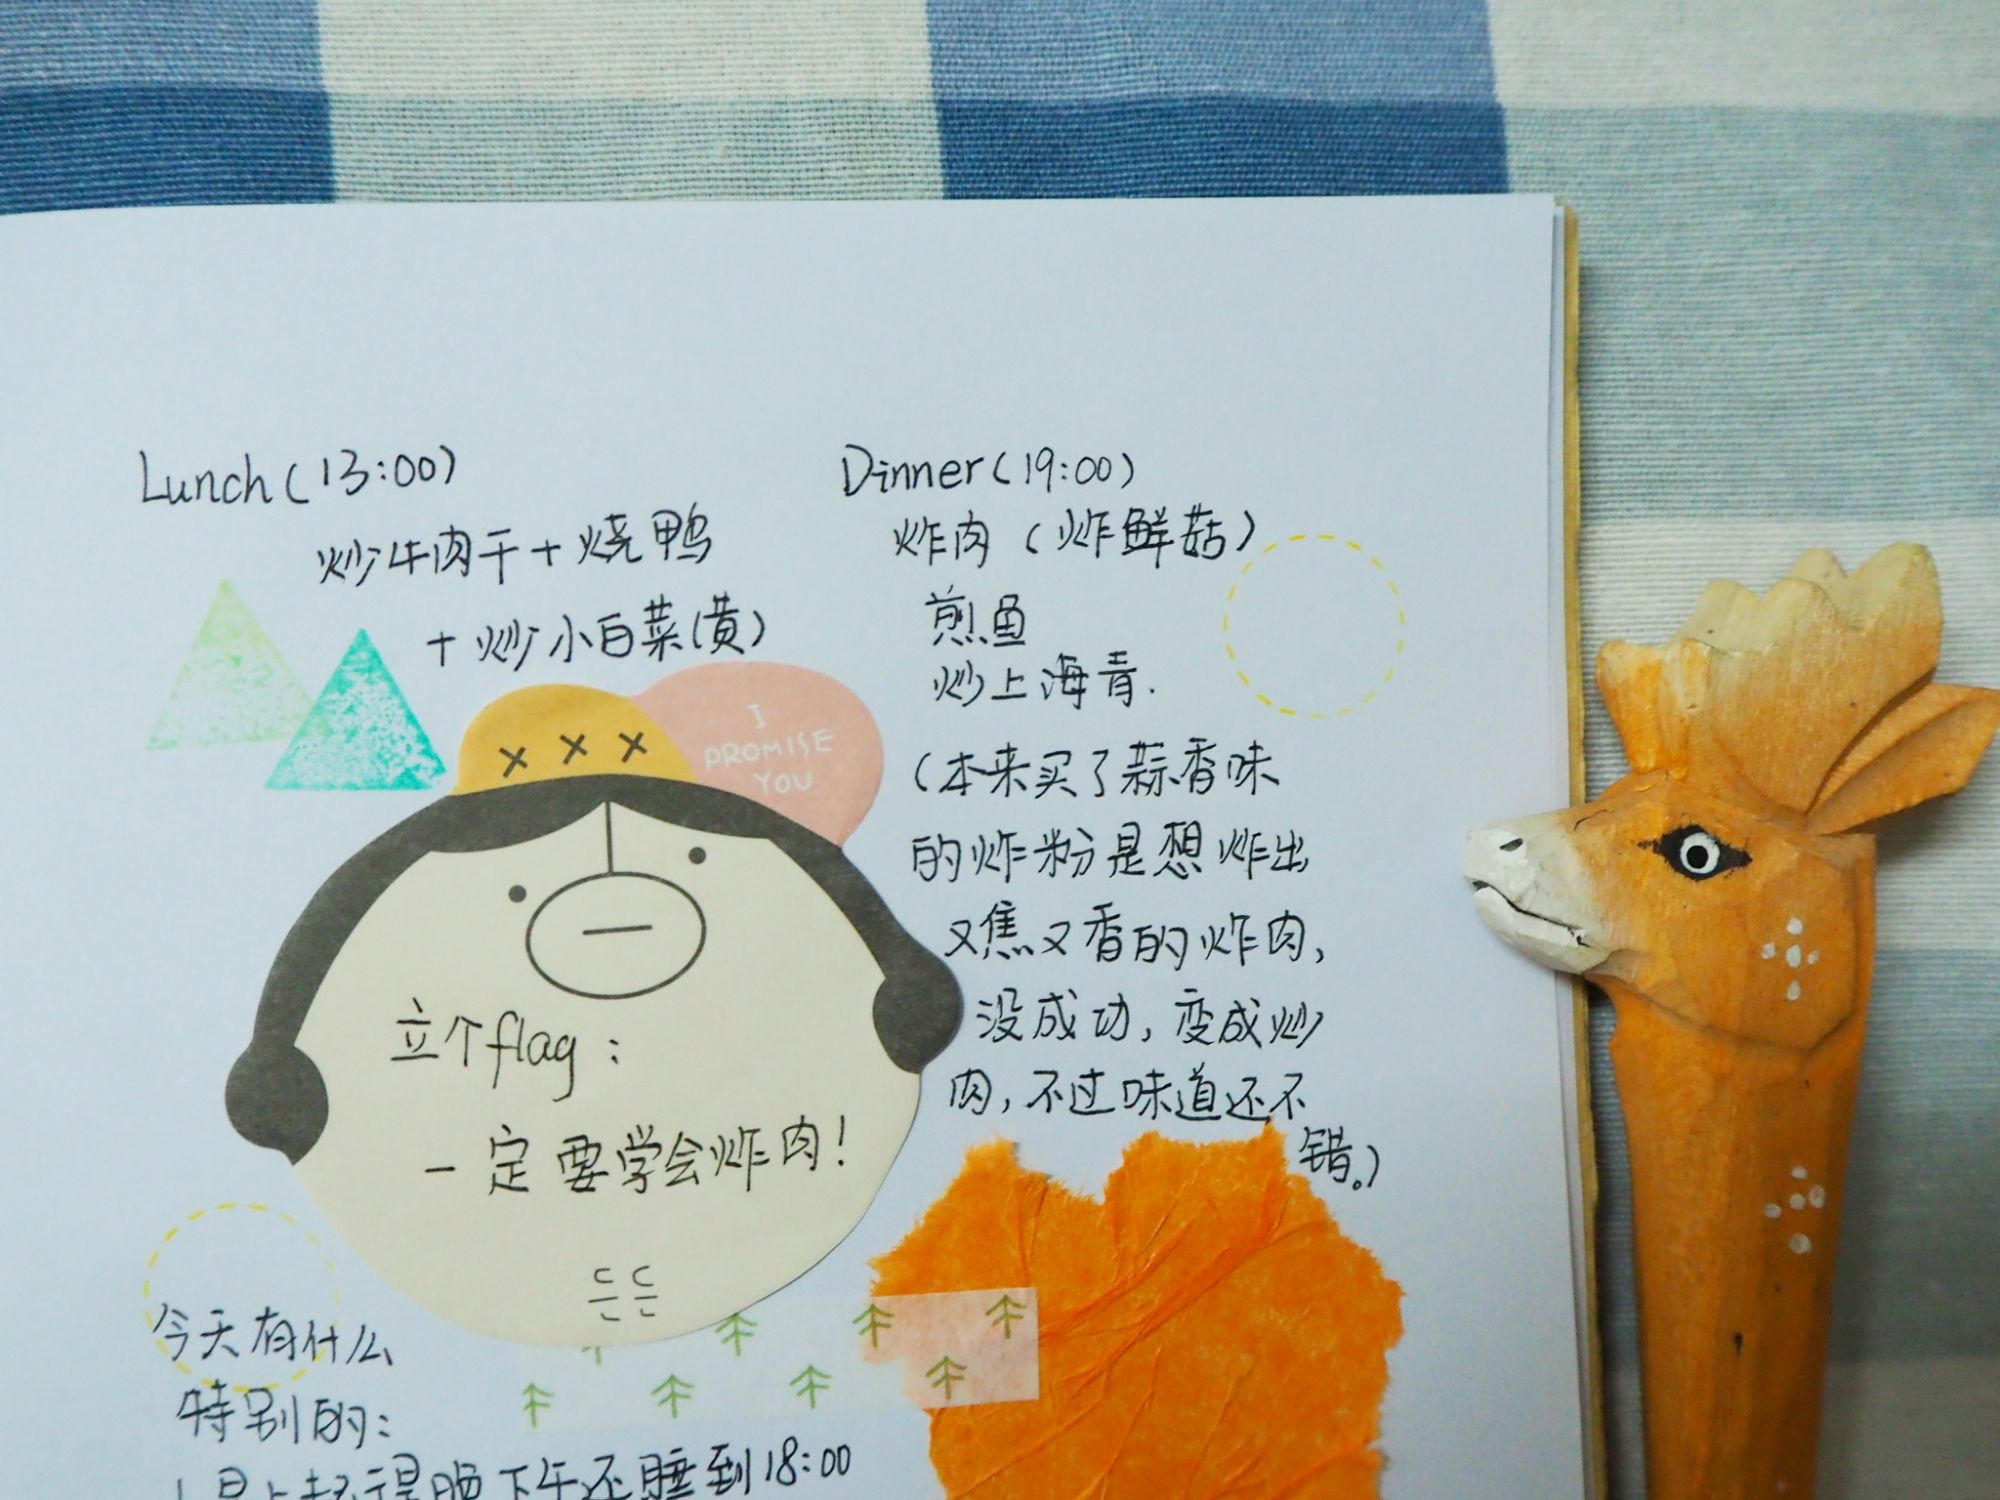 Lunch(13:00)
炒牛肉干+烧鸭
+炒小白菜(黄)
I
PROMISE
YOU
立个flag：
一定要学会炸肉！
Dinner(19:00)
炸肉（炸鲜菇）
煎鱼
炒上海青.
（本来买了蒜香味
的炸粉是想炸出
又焦又香的炸肉，
没成功，变成炒
肉，不过味道还不
错。）
今天有什么
特别的：
1.早上起得晚下午还睡到18:00